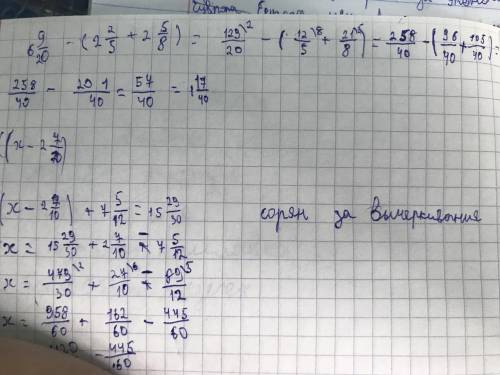 6 9/20 - (2 2/5 + 2 5/8) = 129\2/20 - (12\8/5 + 21\5/8) = 258/40 - (96/40 + 105/40) =
258/40 - 201/40 = 57/40 = 1 17/40
((x - 2 7/10)
(x - 2 7/10) + 7 5/12 = 15 29/30
сорян за вычеркивания
x = 15 29/30 + 2 7/10 - 7 5/12
x = 479\2/30 + 27\6/10 - 89\5/12
x = 958/60 + 162/60 - 445/60
- 445/60